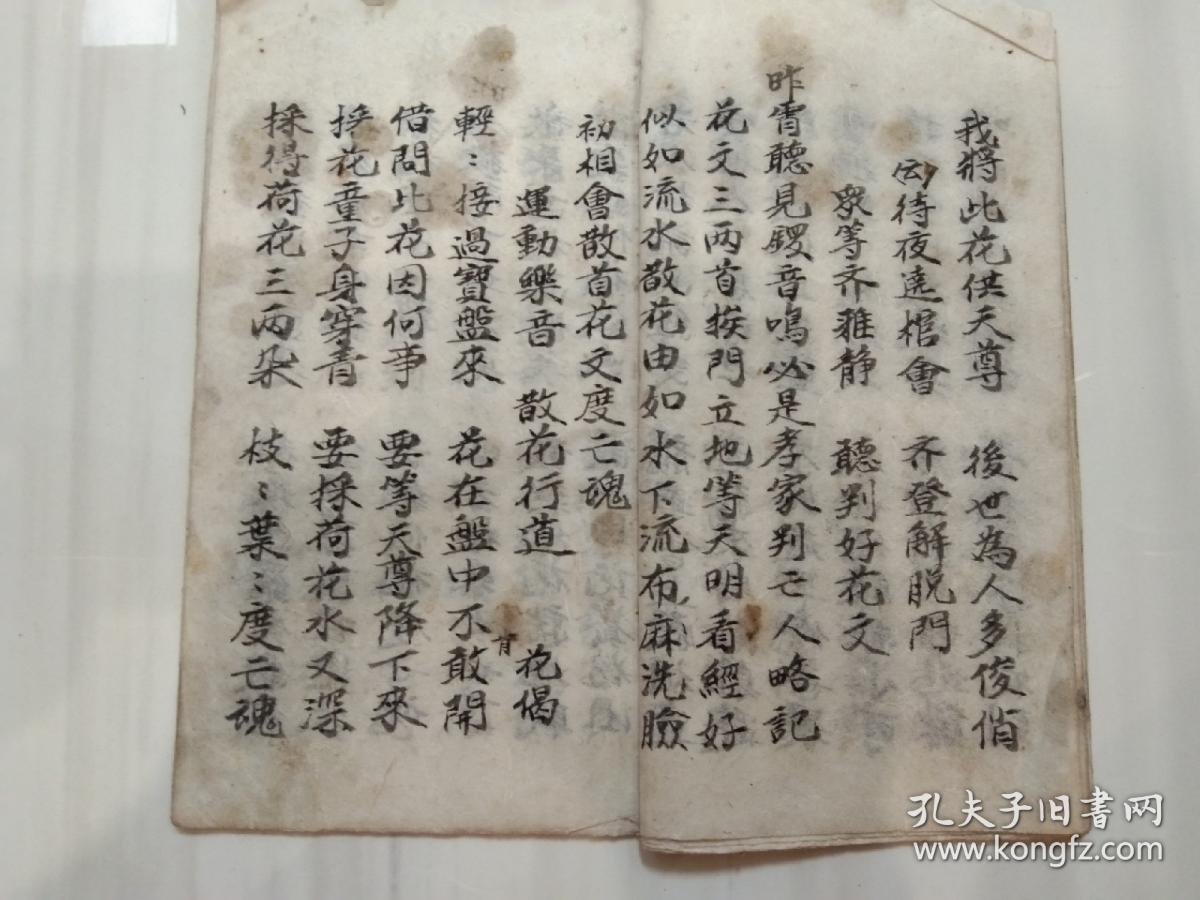 我將此花供天尊　後世為人多俊俏
云待夜遶棺會　齐登解脱門
眾等齐雅静　聽判好花文
昨宵聽見鑼音鳴必是孝家判亡人略記
花文三两首挨門立地等天明看經好
似如流水散花由如水下流布麻洗臉
初相會散首花文度亡魂
運動樂音　散花行道　花偈
輕：接過寶盤來　花在盤中不敢開
借問此花因何事　要等天尊降下來
採花童子身穿青　要採荷花水又深
採得荷花三两朵　枝：葉：度亡魂
孔夫子旧书网
www.kongfz.com